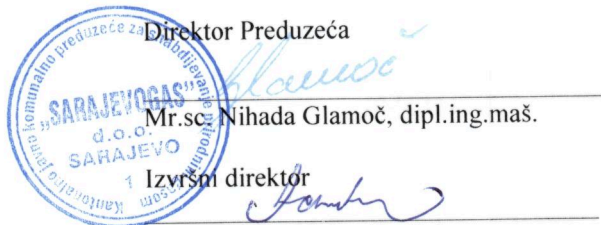 Direktor Preduzeća
Glamoč
Mr.sc. Nihada Glamoč, dipl.ing.maš.
Izvršni direktor
Kantonalno javno komunalno preduzeće za snabdijevanje prirodnim gasom
„SARAJEVOGAS”
d.o.o.
SARAJEVO
1